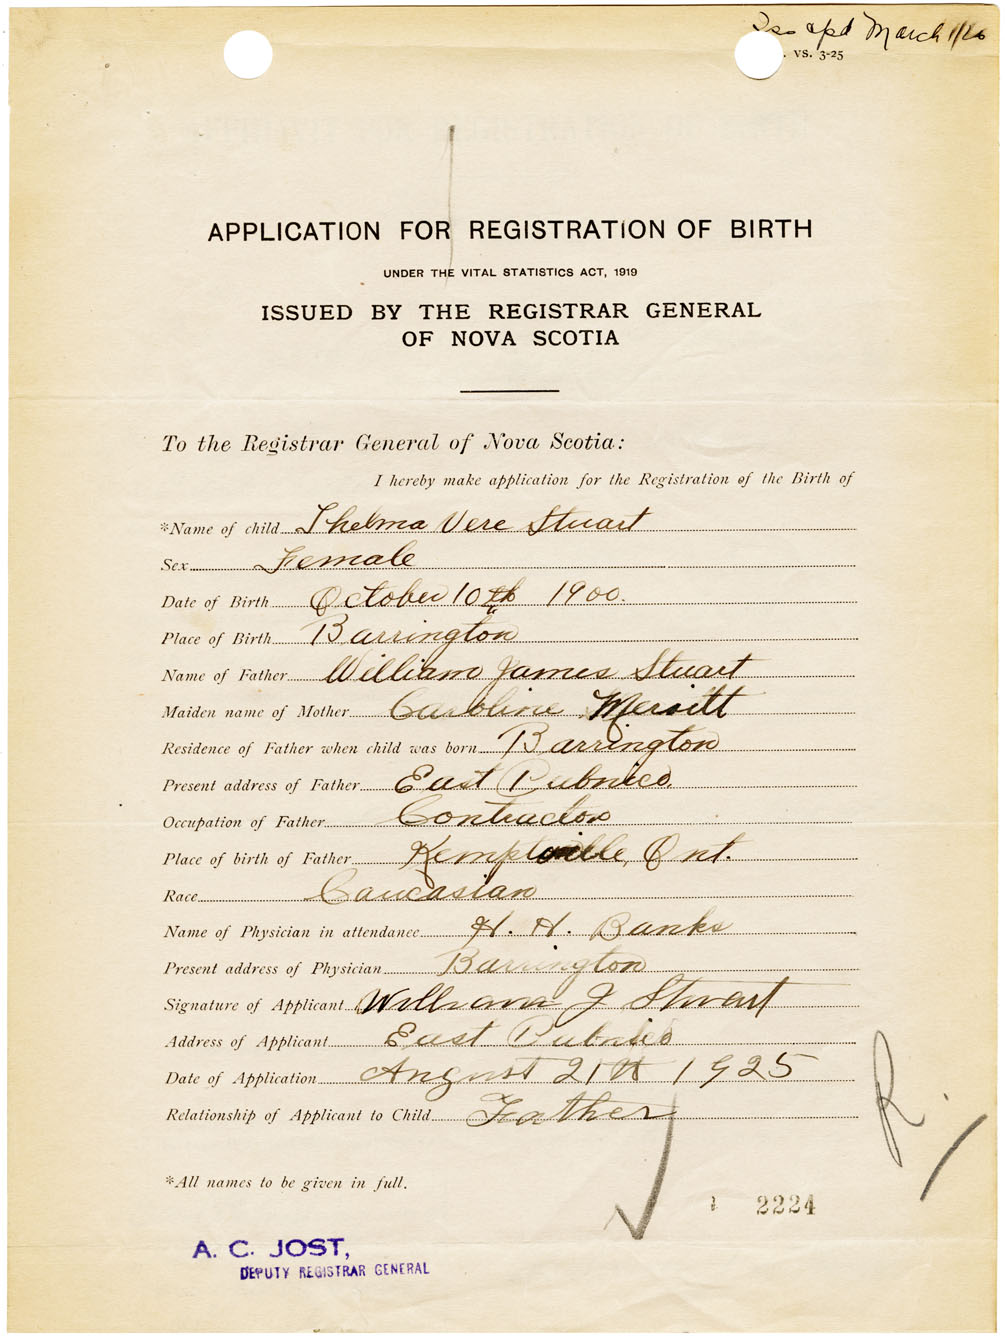 Iss apd March 1/26
. VS. 3-25
APPLICATION FOR REGISTRATION OF BIRTH
UNDER THE VITAL STATISTICS ACT, 1919
ISSUED BY THE REGISTRAR GENERAL
OF NOVA SCOTIA
To the Registrar General of Nova Scotia:
I hereby make application for the Registration of the Birth of
*Name of child Thelma Vere Stuart
Sex Female
Date of Birth October 10th 1900.
Place of Birth Barrington
Name of Father William James Stuart
Maiden name of Mother Caroline Merritt
Residence of Father when child was born Barrington
Present address of Father East Pubnico
Occupation of Father Contractor
Place of birth of Father Kemptville, Ont.
Race Caucasian
Name of Physician in attendance H. H. Banks
Present address of Physician Barrington
Signature of Applicant William J Stuart
Address of Applicant East Pubnico
Date of Application August 21th 1925
Relationship of Applicant to Child Father
*All names to be given in full.
R.
2224
A. C. JOST,
DEPUTY REGISTRAR GENERAL